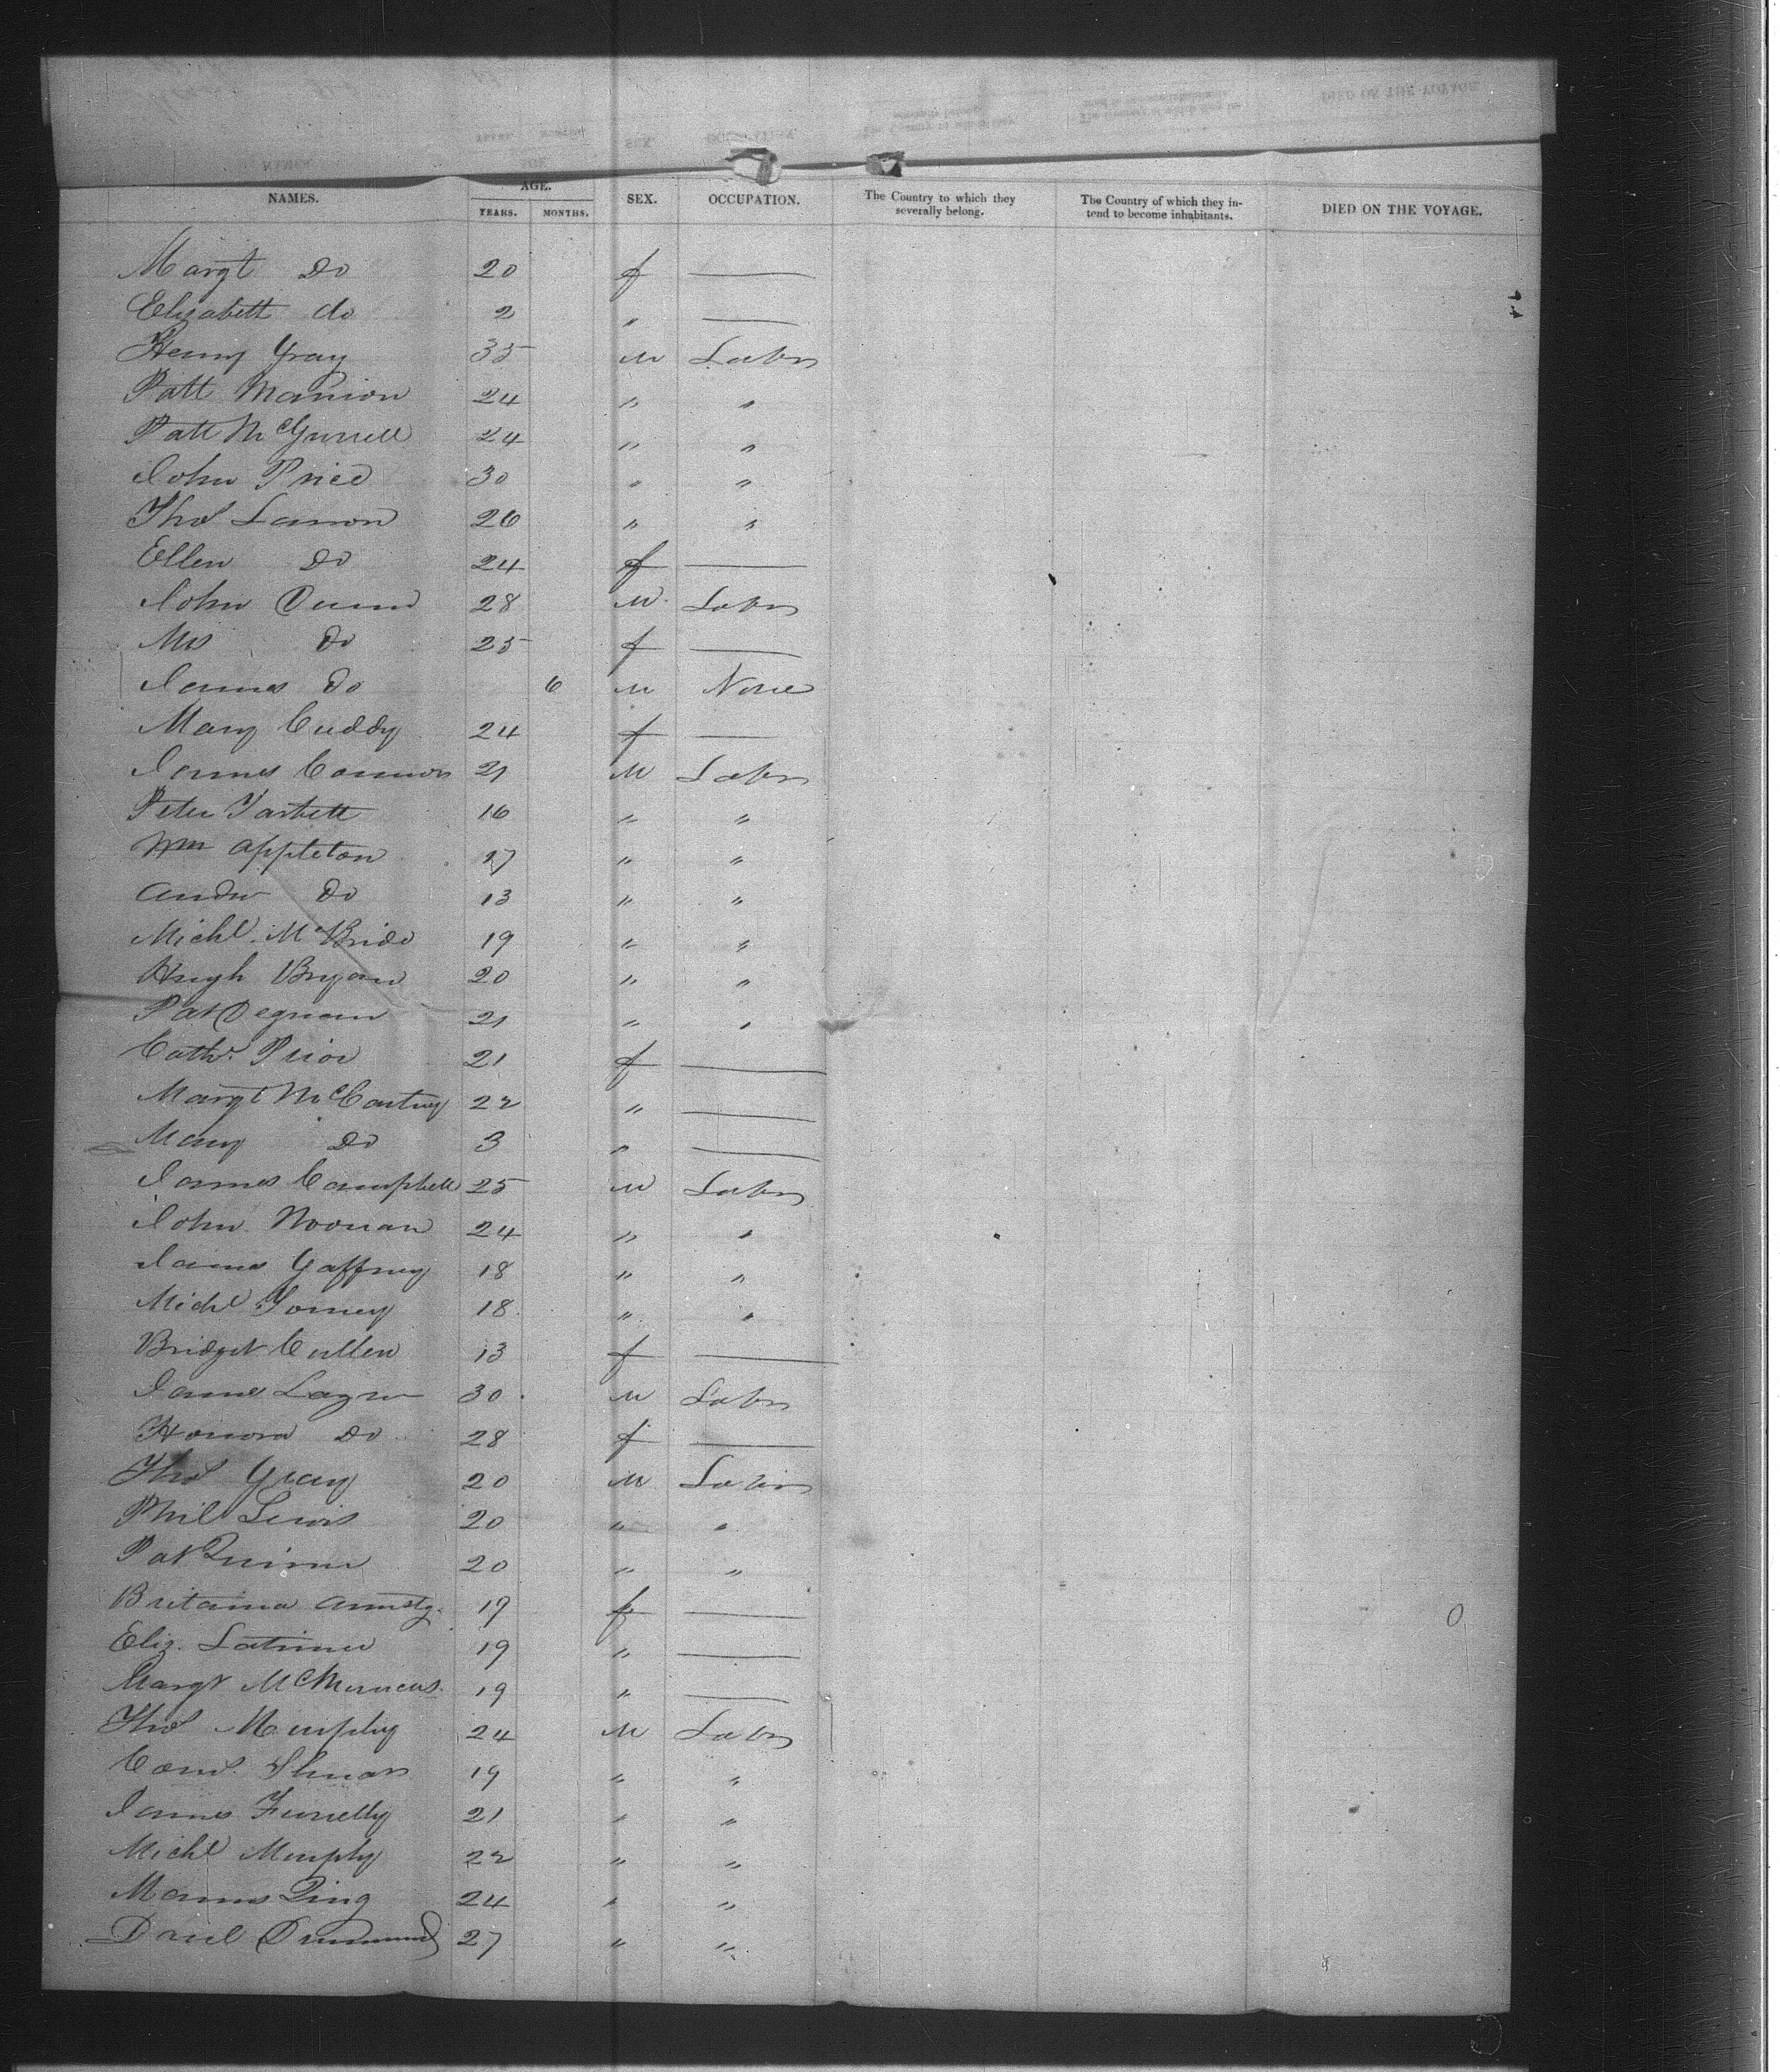 NAMES. AGE. YEARS. MONTHS. SEX. OCCUPATION. The Country to which they severally belong. The Country of which they intend to become inhabitants. DIED ON THE VOYAGE.
Margt Do 20 f
Elizabeth do 2 "
Henry Gray 35 M Labr
Patt Manion 24 " "
Patt McGurrell 24 " "
John Price 30 " "
Thos Lamon 26 " "
Ellen Do 24 f
John Dunn 28 M Labr
Mrs Do 25 f
James Do 6 M None
Mary Cuddy 24 f
James Connors 21 M Labr
Peter Tarbett 16 " "
Wm Appleton 17 " "
Andw Do 13 " "
Michl McBride 19 " "
Hugh Bryan 20 " "
Pat Degnam 21 " "
Cathr. Prior 21 f
Margt McCartney 22 "
Mary Do 3 "
James Campbell 25 M Labr
John Noonan 24 " "
James Gaffney 18 " "
Michl Torney 18 " "
Bridget Cullen 13 f
James 30 M Labr
Honora Do 28 f
Thos Gray 20 M Labr
Phil Lewis 20 " "
Pat Quinn 20 " "
Britania Armstg. 19 f
Eliz. Latimer 19 "
Margt McManus 19 "
Thos Murphy 24 M Labr
19 " "
James Furrelly 21 " "
Michl Murphy 22 " "
Manus Ring 24 " "
Danl Drummond 27 " "